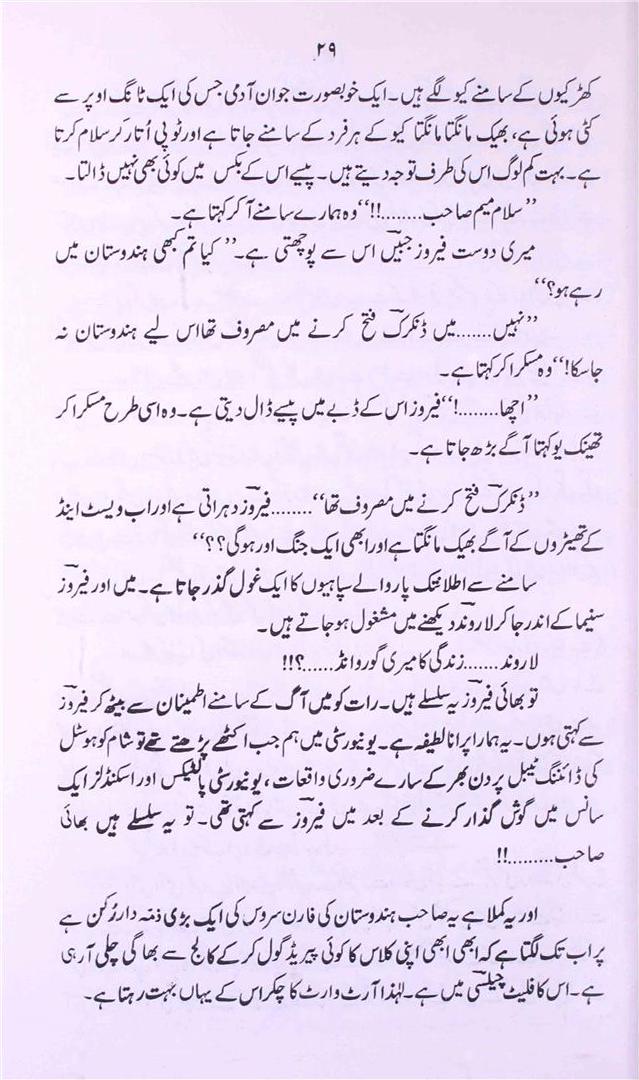 ۲۹
کھڑکیوں کے سامنے کیو لگے ہیں۔ ایک خوبصورت جوان آدمی جس کی ایک ٹانگ اوپر سے
کٹی ہوئی ہے، بھیک مانگتا مانگتا کیو کے ہر فرد کے سامنے جاتا ہے اور ٹوپی اُتار کر سلام کرتا
ہے۔ بہت کم لوگ اس کی طرف توجہ دیتے ہیں۔ پیسے اس کے بکس میں کوئی بھی نہیں ڈالتا۔
”سلام میم صاحب........!!“ وہ ہمارے سامنے آ کر کہتا ہے۔
میری دوست فیروز جبیں اس سے پوچھتی ہے۔ ”کیا تم کبھی ہندوستان میں
رہے ہو؟“
”نہیں.......میں ڈنکرک فتح کرنے میں مصروف تھا اس لیے ہندوستان نہ
جا سکا!“ وہ مسکرا کر کہتا ہے۔
”اچھا........!“ فیروز اس کے ڈبے میں پیسے ڈال دیتی ہے۔ وہ اسی طرح مسکرا کر
تھینک یو کہتا آگے بڑھ جاتا ہے۔
”ڈنکرک فتح کرنے میں مصروف تھا“........فیروز دہراتی ہے اور اب ویسٹ اینڈ
کے تھیڑوں کے آگے بھیک مانگتا ہے اور ابھی ایک جنگ اور ہو گی؟؟“
سامنے سے اطلانتک پار والے سپاہیوں کا ایک غول گذر جاتا ہے۔ میں اور فیروز
سنیما کے اندر جا کر لاروند دیکھنے میں مشغول ہو جاتے ہیں۔
لاروند.......زندگی کا میری گو راؤنڈ......؟!!
تو بھائی فیروز یہ سلسلے ہیں۔ رات کو میں آگ کے سامنے اطمینان سے بیٹھ کر فیروز
سے کہتی ہوں۔ یہ ہمارا پرانا لطیفہ ہے۔ یونیورسٹی میں ہم جب اکٹھے پڑھتے تھے تو شام کو ہوسٹل
کی ڈائننگ ٹیبل پر دن بھر کے سارے ضروری واقعات، یونیورسٹی پالٹیکس اور اسکنڈلز ایک
سانس میں گوش گذار کرنے کے بعد میں فیروز سے کہتی تھی۔ تو یہ سلسلے ہیں بھائی
صاحب.........!!
اور یہ کملا ہے یہ صاحب ہندوستان کی فارن سروس کی ایک بڑی ذمہ دار رُکن ہے
پر اب تک لگتا ہے کہ ابھی ابھی اپنی کلاس کا کوئی پیریڈ گول کر کے کالج سے بھاگی چلی آ رہی
ہے۔ اس کا فلیٹ چیلسی میں ہے۔ لہٰذا آرٹ وارٹ کا چکر اس کے یہاں بہت رہتا ہے۔